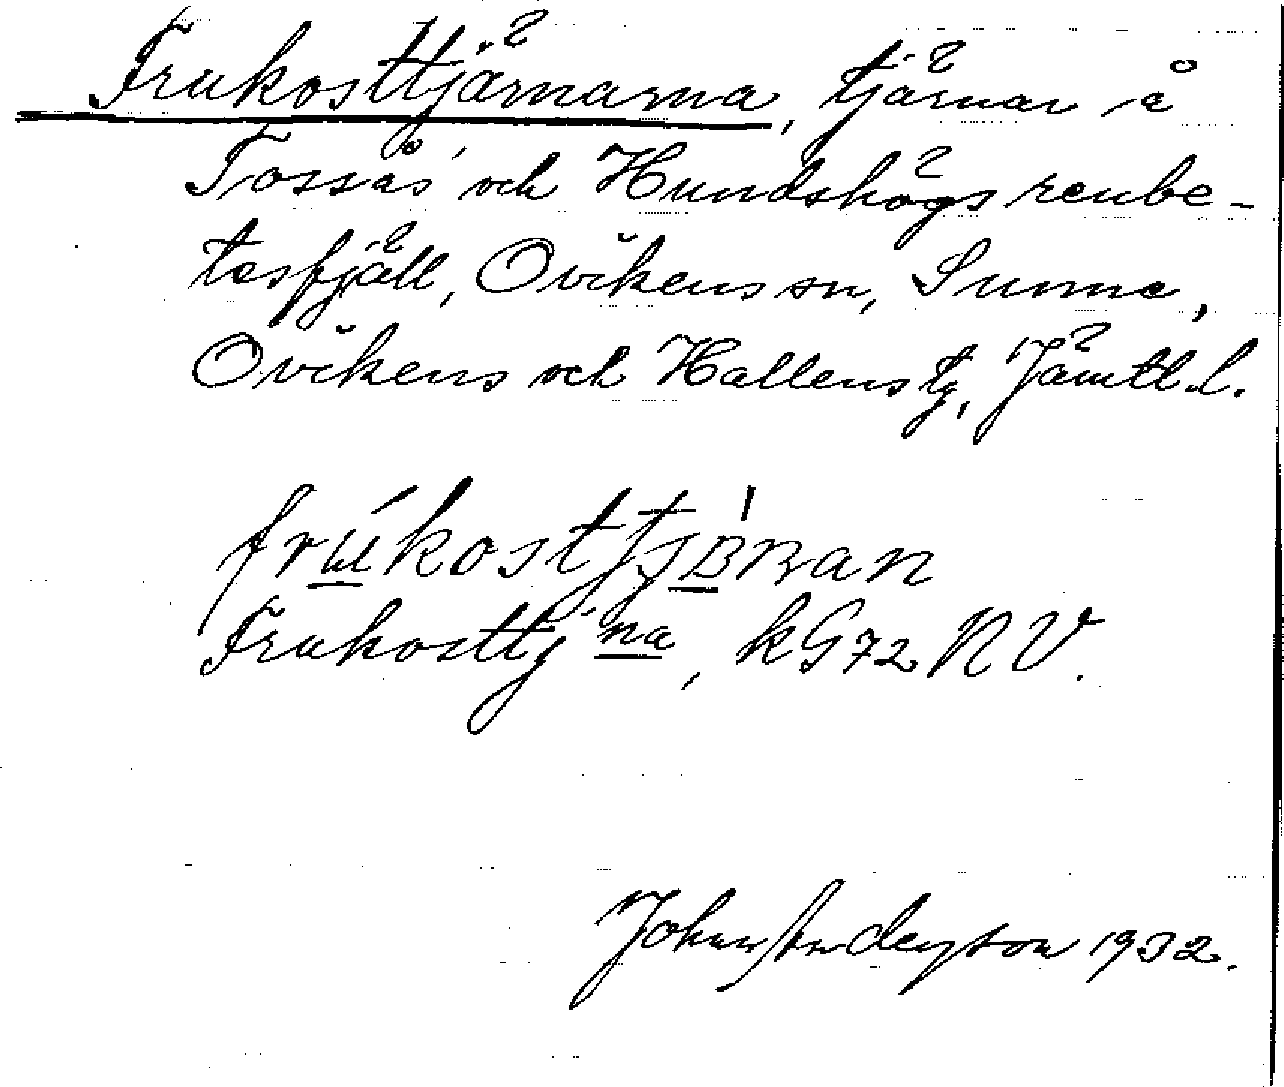 Frukosttjärnarna, tjärnar å
Tossås och Hundshögs renbe-
tesfjäll, Ovikens sn, Sunne,
Ovikens och Hallens tg, Jämtl. l.
frúkosttjɜ̀ʀan
Frukosttj na, kG72 NV.
John Anderson 1932.